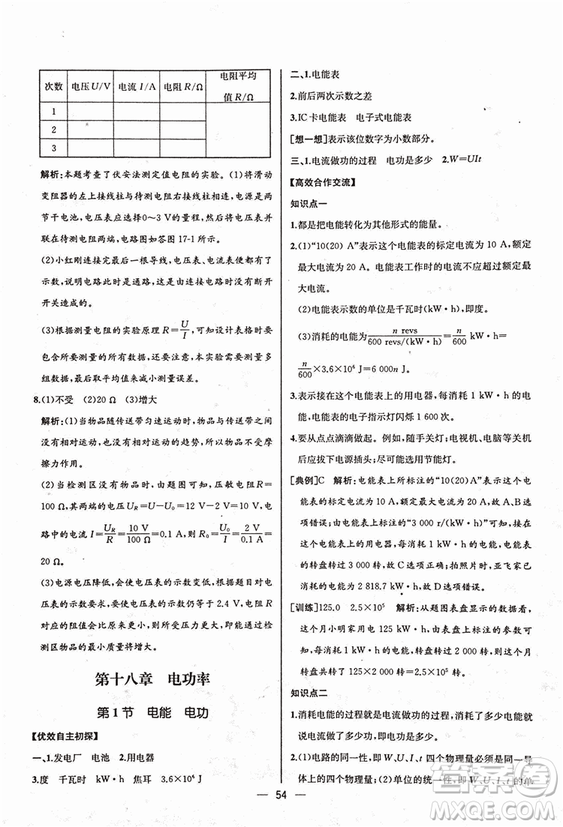 次数 电压U/V 电流I/A 电阻R/Ω 电阻平均值R/Ω
1
2
3
解析:本题考查了伏安法测定值电阻的实验。(1)将滑动
变阻器的左上接线柱与待测电阻左端相连,电源是两
节干电池,电压表应选择0~3 V的量程,将电压表并
联在待测电阻两端。电路图如答图17-1所示。
(2)小红刚连接完最后一根导线,电流表和电压表都有了
示数,说明此时电路是通路,可能是连接电路时未断开
开关造成的。
(3)根据测量电阻的实验原理R=U/I,实验表格中要
包含所要测量的物理量,还要注意,本实验需要测量多
组数据,最后取平均来减小测量误差。
8.(1)不受 (2)20 Ω (3)增大
解析:(1)当物品随传送带匀速运动时,物品与传送带
间没有相对运动或相对运动的趋势,所以物品不受摩
擦力作用。
(2)当检测区内无物品时,由题图可知,R0的阻值为
100 Ω,其两端的电压UR=U-U0=12 V-2 V=10 V,电
路中的电流I=UR/R=10 V/100 Ω=0.1 A,则R0=U0/I=2 V/0.1 A=
20 Ω。
(3)电源电压降低,会导致电压表的示数变低,若要使
电压表的示数仍等于2 V,需将电阻R调大,电阻R
对应的阻值增大,即电压表的示数变低,会导致通过检
测区物品的最小质量将增大。
第十八章 电功率
第1节 电能 电功
【优效自主初探】
一、1.发电厂 电池 2.用电器
3.度 千瓦时 kW·h 焦耳 3.6×10⁶
二、1.电能表
2.前后两次示数之差
3.IC卡电能表 电子式电能表
[想一想]表示该位数字为小数部分。
三、1.电流做功的过程 电功是多少 2.W=UIt
【高效合作交流】
知识点一
1.都是把电能转化为其他形式的能量。
2.(1)“10(20) A”表示这个电能表的标定电流为10 A,额定
最大电流为20 A。电能表工作时的电流不应超过额定
最大电流。
(2)电能表示数的单位是千瓦时(kW·h),即度。
(3)消耗的电能为n revs/600 revs/(kW·h)=n/600 kW·h=
n/600×3.6×10⁶ J=6 000n J。
3.表示接在这个电能表上的用电器,每消耗1 kW·h的电
能,电能表的电子指示灯闪烁1 600次。
4.要从点点滴滴做起。例如,随手关灯;电视机、电脑等关机
后应拔下电源插头;尽可能选用节能灯。
[典例]C 解析:电能表上标有“10(20) A”,表示这个电
能表的标定电流为10 A,额定最大电流为20 A,故A、B选
项错误;由“3 000 r/(kW·h)”可知,每消耗1 kW·h电
能表的转盘转过3 000转,故C选项正确;指示牌示数
2 818.7 kW·h,最后一位是小数,故这段时间,亚飞家已
消耗的电能为2 818.7 kW·h,故D选项错误。
[训练]125.0 2.5×10⁵ 解析:从题图表格的数据看,
这个月小明家用电度,由表盘上标明可知,每消耗
1 kW·h的电能,转盘转过2 000转,则这个月电能表的
转盘共转了125×2 000=2.5×10⁵(转)。
知识点二
1.如消耗电能的过程就是电流做功的过程,消耗电能的多少就
是电流做功的多少。
2.(1)电路的同一性,即W、U、I、t四个物理量必须是同一导
体上的四个物理量。(2)单位的统一性,即W、U、I、t的单
54
作业帮
MXQE.COM